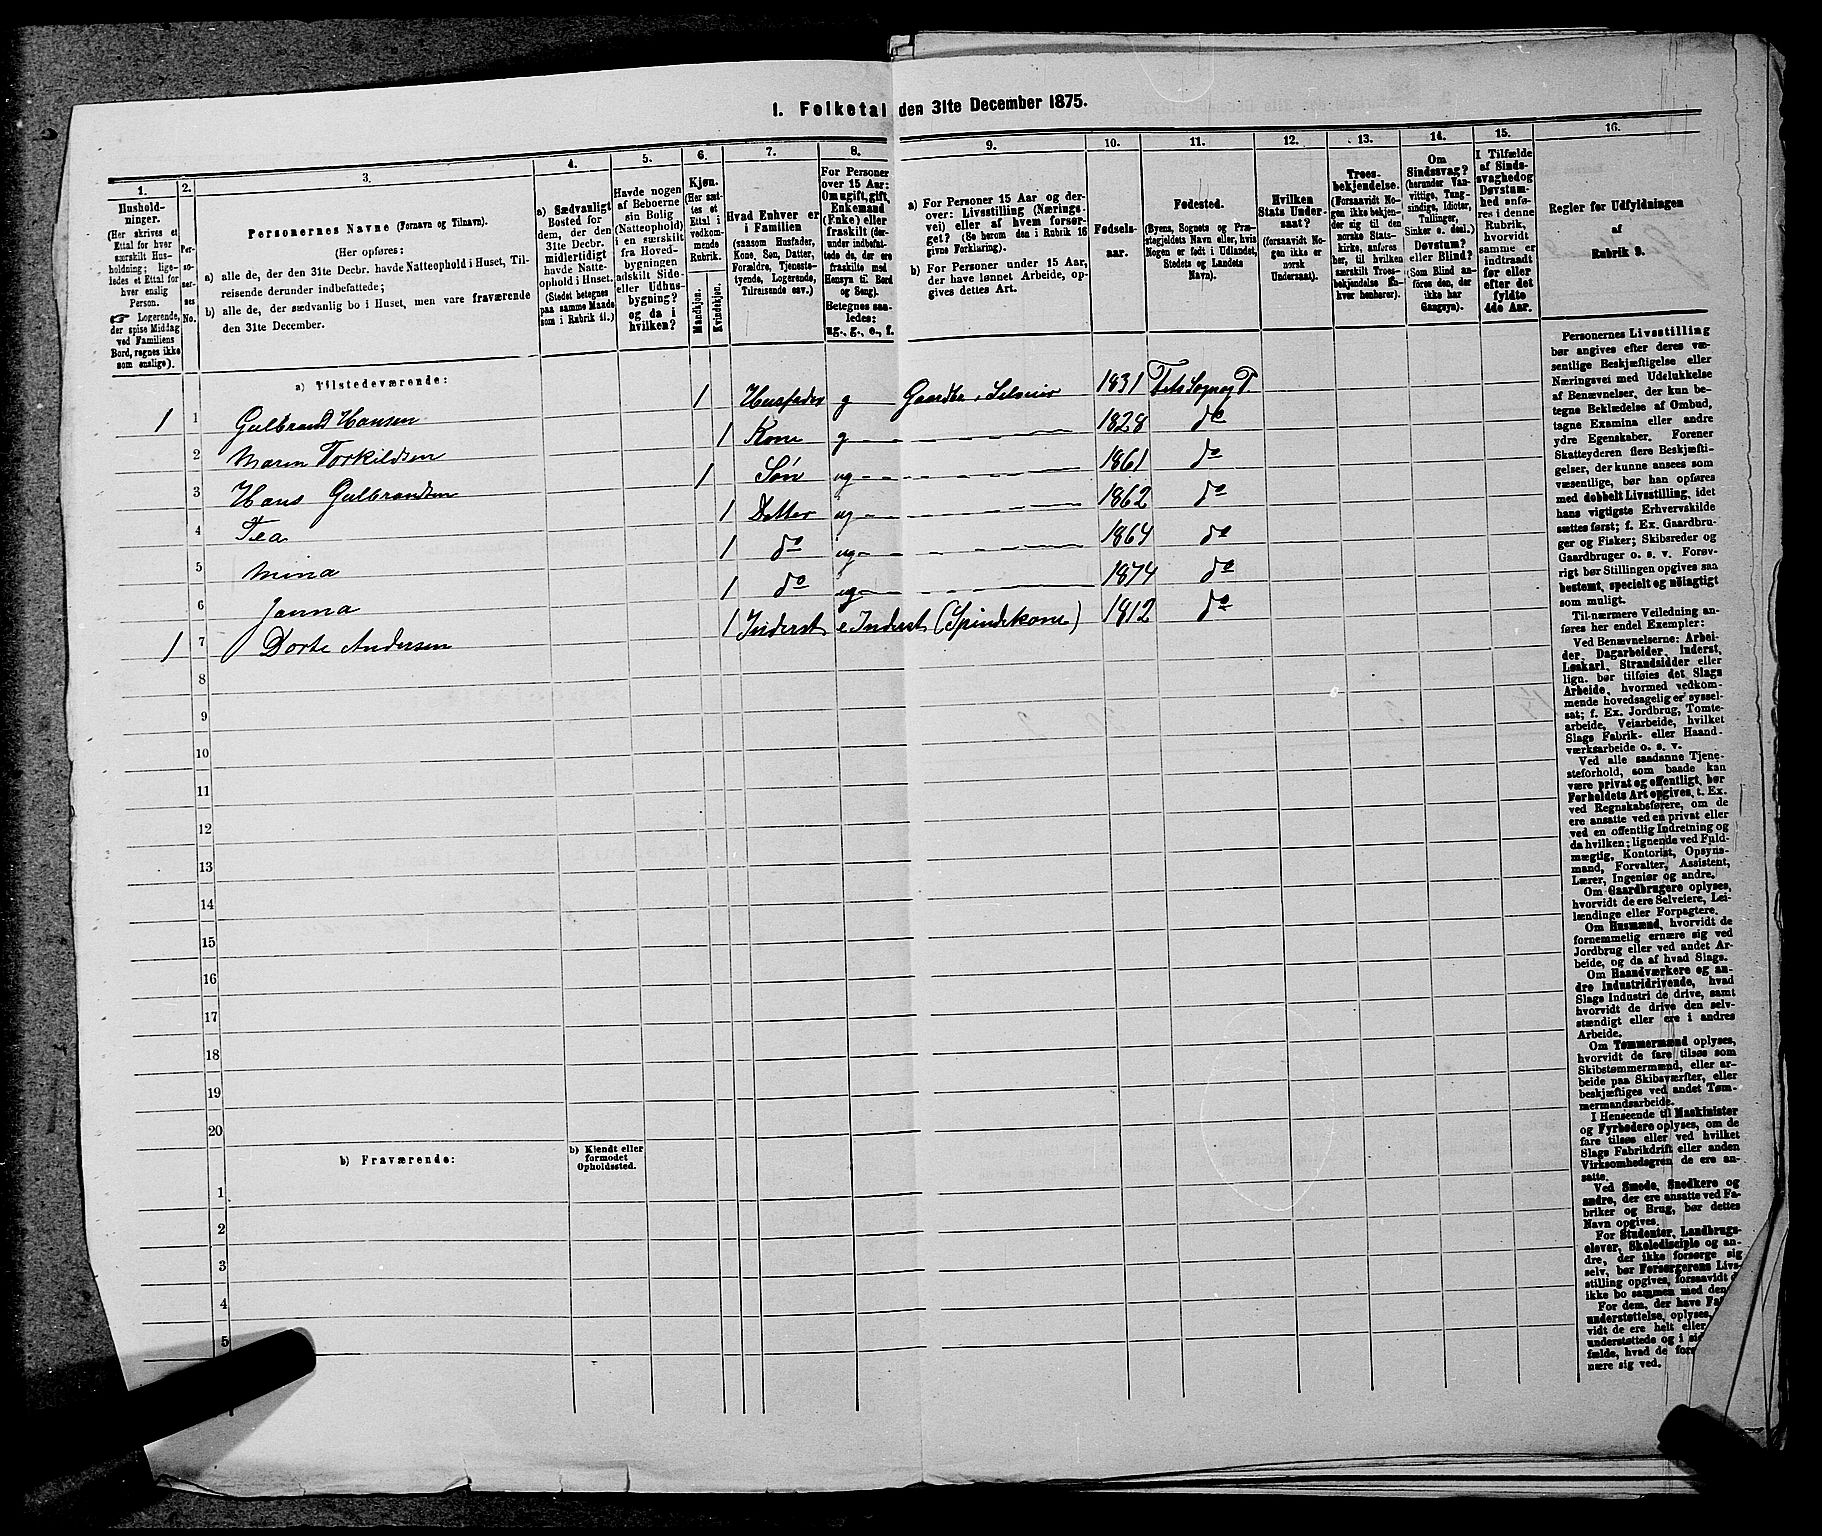 I. Folketal den 31te December 1875.
1. 2. 3. 4. 5. 6. 7. 8. 9. 10. 11. 12. 13. 14. 15. 16.
Hushold-
ninger.
(Her skrives et
Ettal for hver
særskilt Hus-
holdning; lige-
ledes et Ettal for
hver enslig
Person.
☞ Logerende,
der spise Middag
ved Familiens
Bord, regnes ikke
som enslige).
Per-
so-
ner-
nes
No.
Personernes Navne (Fornavn og Tilnavn).
(Her opføres:
a) alle de, der den 31te Decbr. havde Natteophold i Huset, Til-
reisende derunder indbefattede;
b) alle de, der sædvanlig bo i Huset, men vare fraværende
den 31te December.
a) Sædvanligt
Bosted for
dem, der den
31te Decbr.
midlertidigt
havde Natte-
ophold i Huset.
(Stedet betegnes
paa samme Maade
som i Rubrik 11.)
Havde nogen
af Beboerne
sin Bolig
(Natteophold)
i en særskilt
fra Hoved-
bygningen
adskilt Side-
eller Udhus-
bygning?
og da i
hvilken?
Kjøn.
(Her sæt-
tes et
Ettal i
vedkom-
mende
Rubrik.
Mandkjøn.
Kvindekjøn.
Hvad Enhver er
i Familien
(saasom Husfader,
Kone, Søn, Datter,
Forældre, Tjeneste-
tyende, Logerende,
Tilreisende osv.)
For Personer
over 15 Aar:
Om ugift, gift,
Enkemand
(Enke) eller
fraskilt (der-
under indbefat-
tede de, der ere
fraskilte med
Hensyn til Bord
og Seng).
Betegnes saa-
ledes:
ug., g., e., f.
a) For Personer 15 Aar og der-
over: Livsstilling (Nærings-
vei) eller af hvem forsør-
get? (Se herom den i Rubrik 16
givne Forklaring).
b) For Personer under 15 Aar,
der have lønnet Arbeide, op-
gives dettes Art.
Fødsels-
aar.
Fødested.
(Byens, Sognets og Præ-
stegjeldets Navn eller, hvis
Nogen er født i Udlandet,
Stedets og Landets
Navn).
Hvilken
Stats Under-
saat?
(forsaavidt No-
gen ikke er
norsk
Undersaat).
Troes-
bekjendelse.
(Forsaavidt No-
gen ikke bekjen-
der sig til den
norske Stats-
kirke, anføres
her, til hvilken
særskilt Troes-
bekjendelse En-
hver henhører).
Om
Sindssvag?
(herunder Van-
vittige, Tung-
sindige, Idioter,
Tullinger,
Sinker o. desl.)
Døvstum?
eller Blind?
(Som Blind an-
føres den, der
ikke har
Gangsyn).
I Tilfælde
af Sinds-
svaghed og
Døvstum-
hed anfø-
res i denne
Rubrik,
hvorvidt
samme er
indtraadt
før eller
efter det
fyldte
4de Aar.
Regler for Udfyldningen
af
Rubrik 9.
a) Tilstedeværende:
1 1 Gulbrand Hansen 1 Husfader g Gaardbr. Selveier 1831
2 Maren Torkildsen 1 Kone g 1828 do
3 Hans Gulbrandsen 1 Søn ug 1861 do
4 Tea 1 Datter ug 1862 do
5 Mina 1 do ug 1864 do
6 Janna 1 do ug 1874 do
1 7 Dorte Andersen 1 Inderst e Inderst (Spindekone) 1812 do
8
9
10
11
12
13
14
15
16
17
18
19
20
b) Fraværende:
b) Kjendt eller
formodet
Opholdssted.
1
2
3
4
5
Personernes Livsstilling
bør angives efter deres væ-
sentlige Beskjæftigelse eller
Næringsvei med Udelukkelse
af Benævnelser, der kun be-
tegne Beklædelse af Ombud,
tagne Examina eller andre
ydre Egenskaber. Forener
Skatteyderen flere Beskjæfti-
gelser, der kunne ansees som
væsentlige, bør han opføres
med dobbelt Livsstilling, idet
hans vigtigste Erhvervskilde
sættes først; f. Ex. Gaardbru-
ger og Fisker; Skibsreder og
Gaardbruger o. s. v. Forøv-
rigt bør Stillingen opgives saa
bestemt, specielt og nøiagtigt
som muligt.
Til nærmere Veiledning an-
føres her endel Exempler:
Ved Benævnelserne: Arbei-
der, Dagarbeider, Inderst,
Løskarl, Strandsidder eller
lign. bør tilføies det Slags
Arbeide, hvormed vedkom-
mende hovedsagelig er syssel-
sat; f. Ex. Jordbrug, Tomte-
arbeide, Veiarbeide, hvilket
Slags Fabrik- eller Haand-
værksarbeide o. s. v.
Ved alle saadanne Tjene-
steforhold, som baade kan
være privat og offentligt, bør
Forholdets Art opgives, f. Ex.
ved Regnskabsførere, om de
ere ansatte ved en privat eller
ved en offentlig Indretning og
da hvilken; lignende ved Fuld-
mægtig, Kontorist, Opsyns-
mand, Forvalter, Assistent,
Lærer, Ingeniør og andre.
Om Gaardbrugere oplyses,
hvorvidt de ere Selveiere, Lei-
lændinge eller Forpagtere.
Om Husmænd, hvorvidt de
fornemmelig ernære sig ved
Jordbrug eller ved andet Ar-
beide, og da af hvad Slags.
Om Haandværkere og an-
dre Industridrivende, hvad
Slags Industri de drive, samt
hvorvidt de drive den selv-
stændigt eller ere i andres
Arbeide.
Om Tømmermænd oplyses,
hvorvidt de fare tilsøs som
Skibstømmermænd, eller ar-
beide paa Skibsværfter, eller
beskjæftiges ved andet Tøm-
mermandsarbeide.
I Henseende til Maskinister
og Fyrbødere oplyses, om de
fare tilsøs eller ved hvilket
Slags Fabrikdrift eller anden
Virksomhedsgren de ere an-
satte.
Ved Smede, Snedkere og
andre, der ere ansatte ved Fa-
briker og Brug, bør dettes
Navn opgives.
For Studenter, Landbrugs-
elever, Skoledisciple og an-
dre, der ikke forsørge sig
selv, bør Forsørgerens Livs-
stilling opgives, forsaavidt d
ikke bo sammen med den
For dem, der have Fa
understøttelse, oplyses,
vidt de ere helt eller
understøttede og i sid
fælde, hvad de for
nære sig ved.